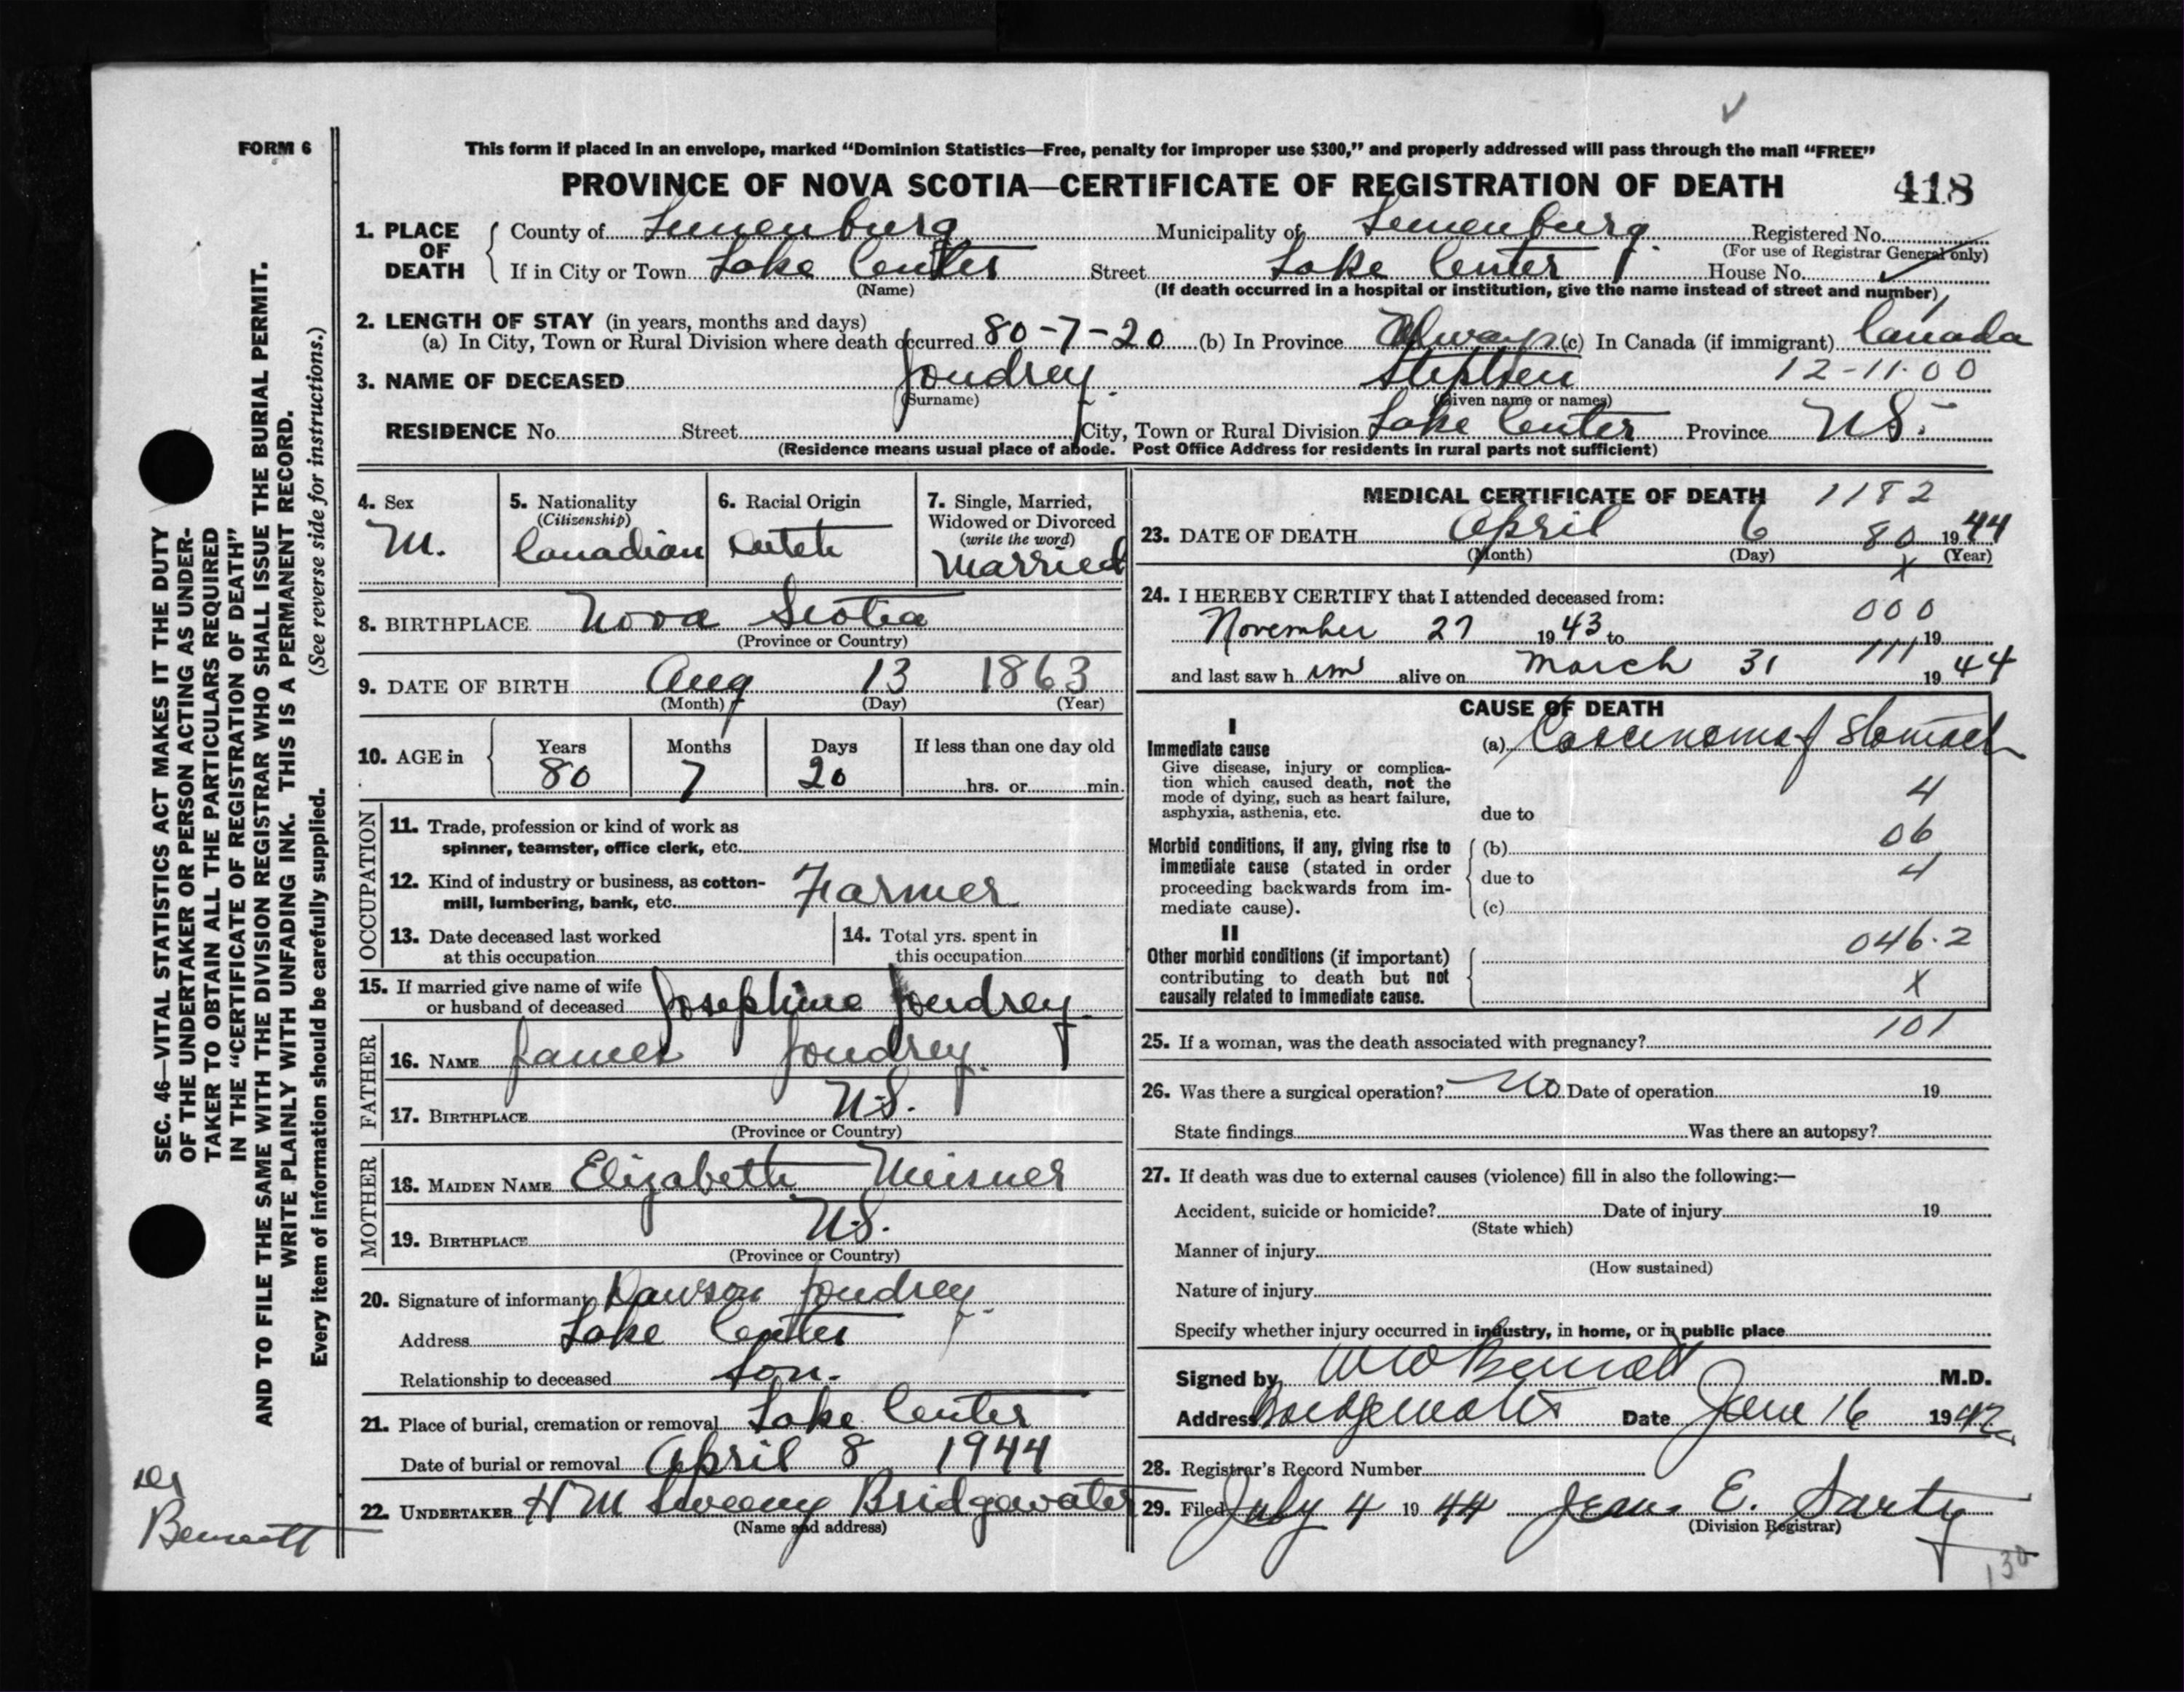 FORM 6
This form if placed in an envelope, marked “Dominion Statistics—Free, penalty for improper use $300,” and properly addressed will pass through the mail “FREE”
PROVINCE OF NOVA SCOTIA—CERTIFICATE OF REGISTRATION OF DEATH 418
1. PLACE OF DEATH
County of Lunenburg Municipality of Lunenburg Registered No.
(For use of Registrar General only)
If in City or Town Lake Center Street Lake Center House No.
(Name) (If death occurred in a hospital or institution, give the name instead of street and number)
2. LENGTH OF STAY (in years, months and days)
(a) In City, Town or Rural Division where death occurred 80-7-20 (b) In Province Always (c) In Canada (if immigrant) Canada
3. NAME OF DECEASED Joudrey Stephen 12-11-00
(Surname) (Given name or names)
RESIDENCE No. Street City, Town or Rural Division Lake Center Province N.S.
(Residence means usual place of abode. Post Office Address for residents in rural parts not sufficient)
4. Sex
M.
5. Nationality
(Citizenship)
Canadian
6. Racial Origin
Dutch
7. Single, Married,
Widowed or Divorced
(write the word)
Married
8. BIRTHPLACE Nova Scotia
(Province or Country)
9. DATE OF BIRTH Aug 13 1863
(Month) (Day) (Year)
10. AGE in Years Months Days If less than one day old
80 7 20 hrs. or min.
OCCUPATION
11. Trade, profession or kind of work as
spinner, teamster, office clerk, etc.
12. Kind of industry or business, as cotton-
mill, lumbering, bank, etc. Farmer
13. Date deceased last worked
at this occupation
14. Total yrs. spent in
this occupation
15. If married give name of wife
or husband of deceased Josephine Joudrey
FATHER
16. NAME James Joudrey
17. BIRTHPLACE N.S.
(Province or Country)
MOTHER
18. MAIDEN NAME Elizabeth Meisner
19. BIRTHPLACE N.S.
(Province or Country)
20. Signature of informant Dawson Joudrey
Address Lake Center
Relationship to deceased Son.
21. Place of burial, cremation or removal Lake Center
Date of burial or removal April 8 1944
22. UNDERTAKER H M Sweeny Bridgewater
(Name and address)
MEDICAL CERTIFICATE OF DEATH 1182
23. DATE OF DEATH April 6 80 1944
(Month) (Day) (Year)
X
24. I HEREBY CERTIFY that I attended deceased from:
000
November 27 1943 to 19
111
and last saw h im alive on March 31 1944
CAUSE OF DEATH
I
Immediate cause
Give disease, injury or complica-
tion which caused death, not the
mode of dying, such as heart failure,
asphyxia, asthenia, etc.
(a) Carcinoma of Stomach
4
due to
06
Morbid conditions, if any, giving rise to
immediate cause (stated in order
proceeding backwards from im-
mediate cause).
(b)
4
due to
(c)
II
Other morbid conditions (if important)
contributing to death but not
causally related to immediate cause.
046.2
X
101
25. If a woman, was the death associated with pregnancy?
26. Was there a surgical operation? No Date of operation 19
State findings Was there an autopsy?
27. If death was due to external causes (violence) fill in also the following:—
Accident, suicide or homicide? Date of injury 19
(State which)
Manner of injury
(How sustained)
Nature of injury
Specify whether injury occurred in industry, in home, or in public place
Signed by W W Bennett M.D.
Address Bridgewater Date June 16 19
28. Registrar's Record Number
29. Filed July 4 1944 Jean E. Sarty
(Division Registrar)
130
SEC. 46—VITAL STATISTICS ACT MAKES IT THE DUTY
OF THE UNDERTAKER OR PERSON ACTING AS UNDER-
TAKER TO OBTAIN ALL THE PARTICULARS REQUIRED
IN THE “CERTIFICATE OF REGISTRATION OF DEATH”
AND TO FILE THE SAME WITH THE DIVISION REGISTRAR WHO SHALL ISSUE THE BURIAL PERMIT.
WRITE PLAINLY WITH UNFADING INK. THIS IS A PERMANENT RECORD.
Every item of information should be carefully supplied. (See reverse side for instructions.)
Bennett